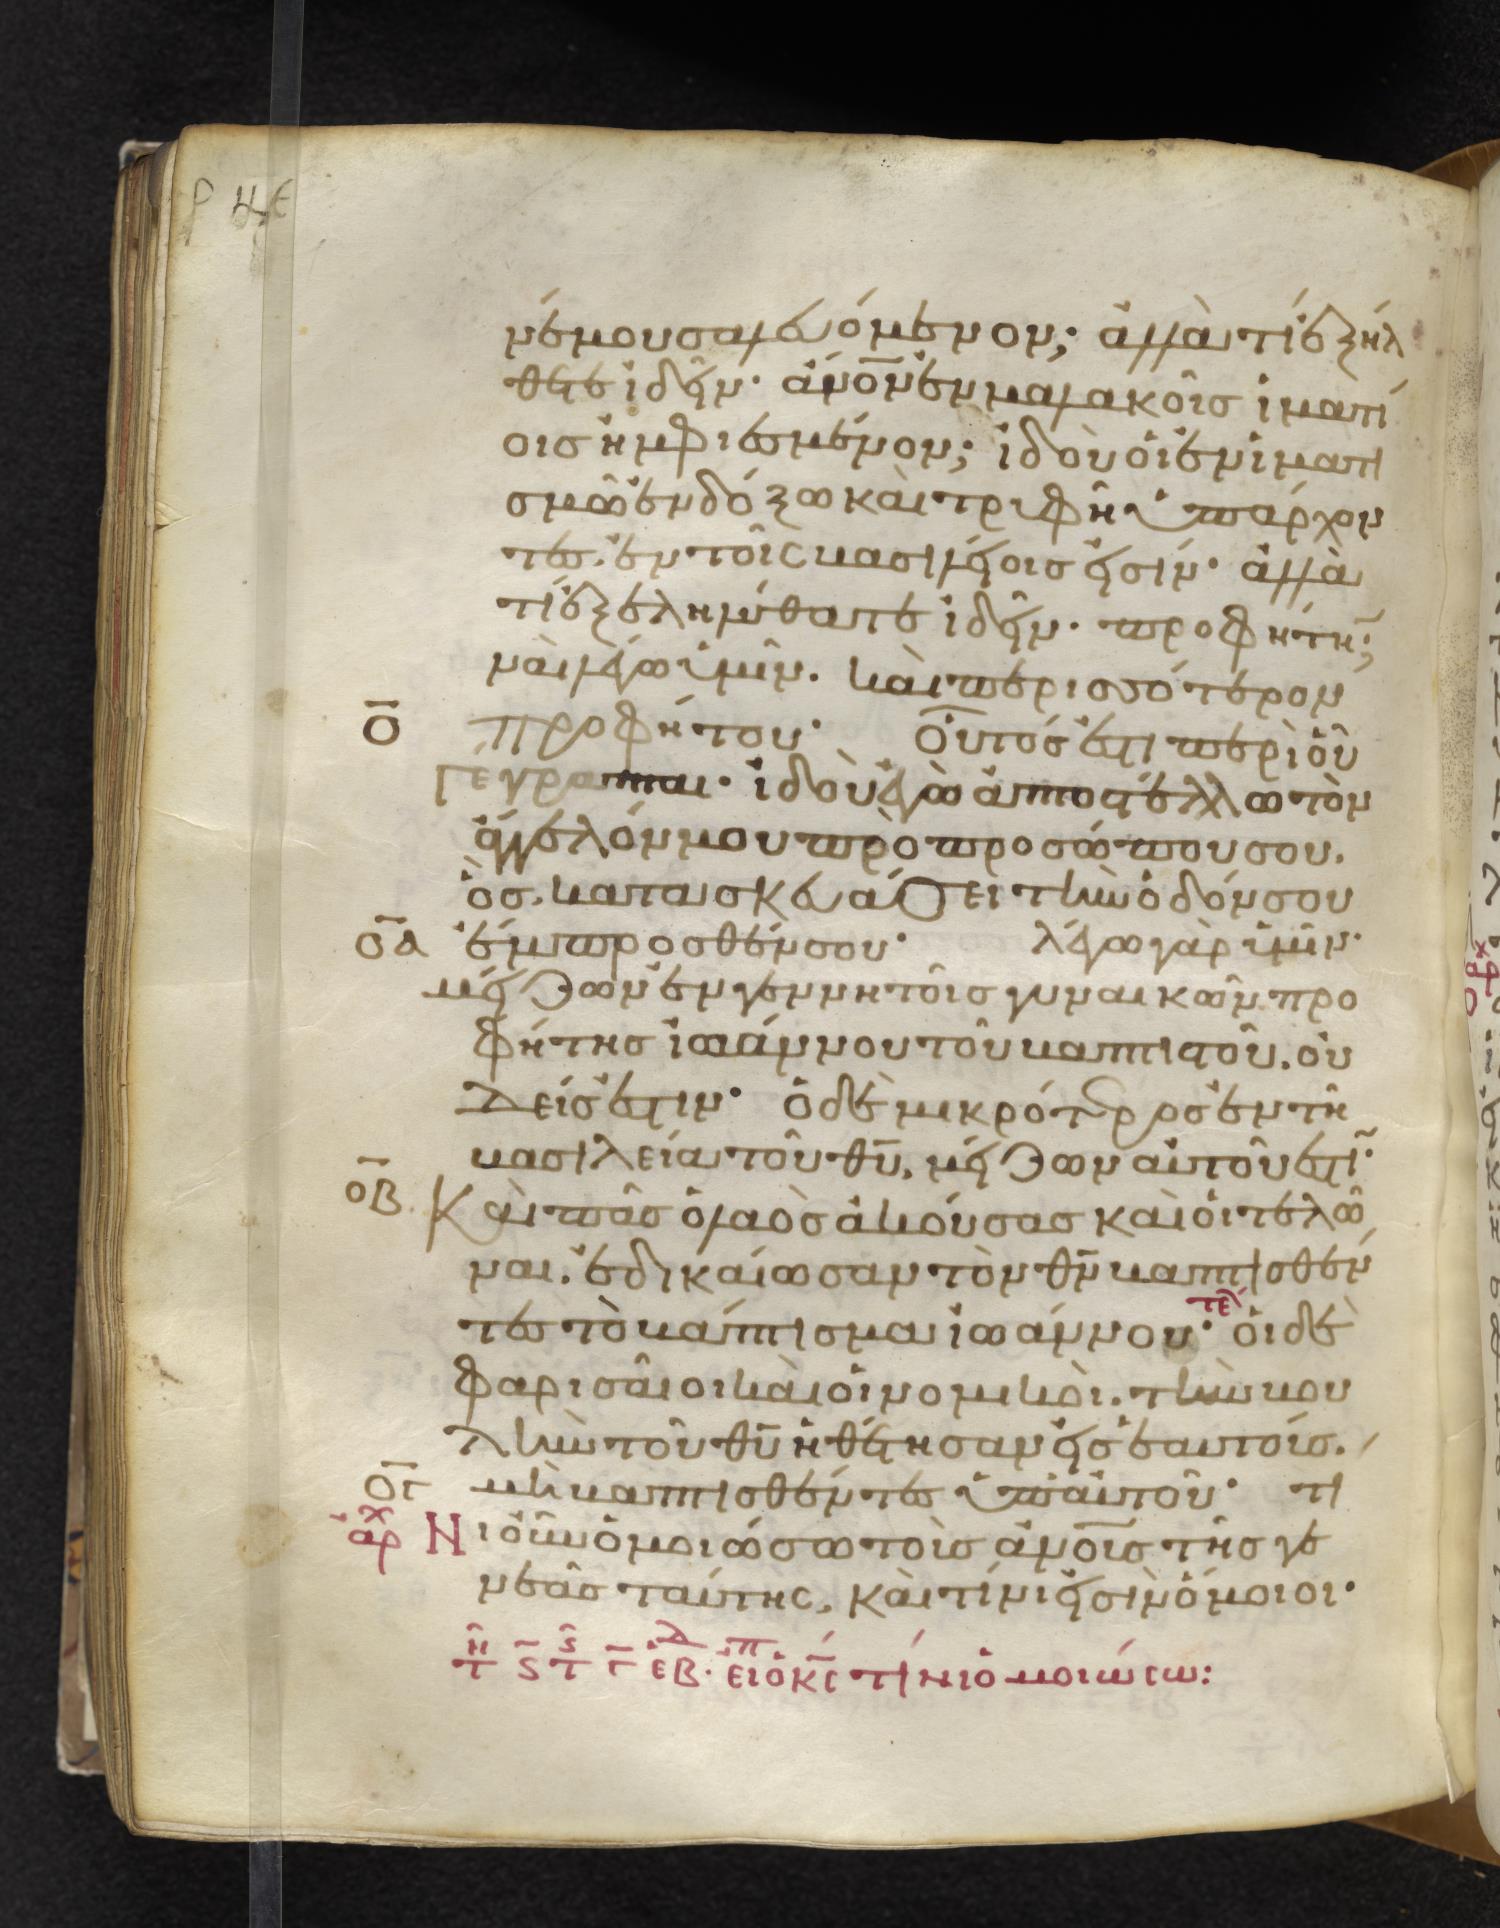 ρ
νέμου σαλευόμενον; ἀλλὰ τί ἐξήλ
θετε ἰδεῖν· ἄν̅ο̅ν̅ ἐν μαλακοῖς ἱματί
οις ἠμφιεσμένον; ἰδοὺ οἱ ἐν ἱματι
σμῶ ἐνδόξω καὶ τρυφῆ ὑπάρχον
τες. ἐν τοῖς βασιλείοις εἰσίν· ἀλλὰ
τί ἐξεληλύθατε ἰδεῖν· προφήτην;
ναὶ λέγω ὑμῖν. καὶ περισσότερον
ο̅ προφήτου· Οὗτός ἐστι περὶ οὗ
γέγραπται· ἰδοὺ ἐγὼ ἀποστέλλω τὸν
ἄγγελόν μου πρὸ προσώπου σου.
ὃς. κατασκευάσει τὴν ὁδόν σου
ο̅α ἔμπροσθέν σου· λέγω γὰρ ὑμῖν·
μείζων ἐν γεννητοῖς γυναικῶν προ
φήτης ἰωάννου τοῦ βαπτιστοῦ. οὐ
δείς ἐστιν· ὁ δὲ μικρότερος ἐν τῆ
βασιλεία τοῦ θ̅υ̅, μείζων αὐτοῦ ἐστι̅·
ο̅β. Καὶ πᾶς ὁ λαὸς ἀκούσας καὶ οἱ τελῶ
ναι. ἐδικαίωσαν τὸν θ̅ν̅ βαπτισθέν
τες τὸ βάπτισμα ἰωάννου· τελ οἱ δὲ
φαρισαῖοι καὶ οἱ νομικοὶ. τὴν βου
λὴν τοῦ θ̅υ̅ ἠθέτησαν εἰς ἑαυτούς.
ο̅γ μὴ βαπτισθέντες ὑπ' αὐτοῦ· τί
ἀρχ Νι οὖν ὁμοιώσω τοὺς ἀν̅ο̅υ̅ς τῆς γε
νεᾶς ταύτης, καὶ τίνι εἰσὶν ὅμοιοι·
εἶπ ὁ κ̅ς τίνι ὁμοιώσω: